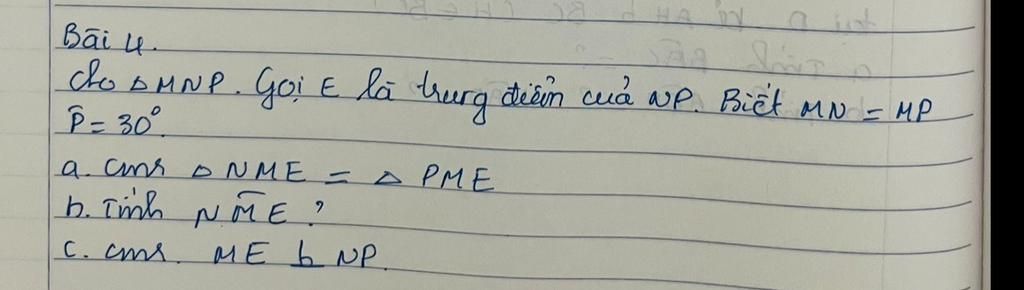 Bài 4.
Cho △MNP. Gọi E là trung điểm cuả NP. Biết MN = MP
P̂ = 30°.
a. cmr △ NME = △ PME
b. Tính NM̂E ?
c. cmr. ME ⊥ NP.